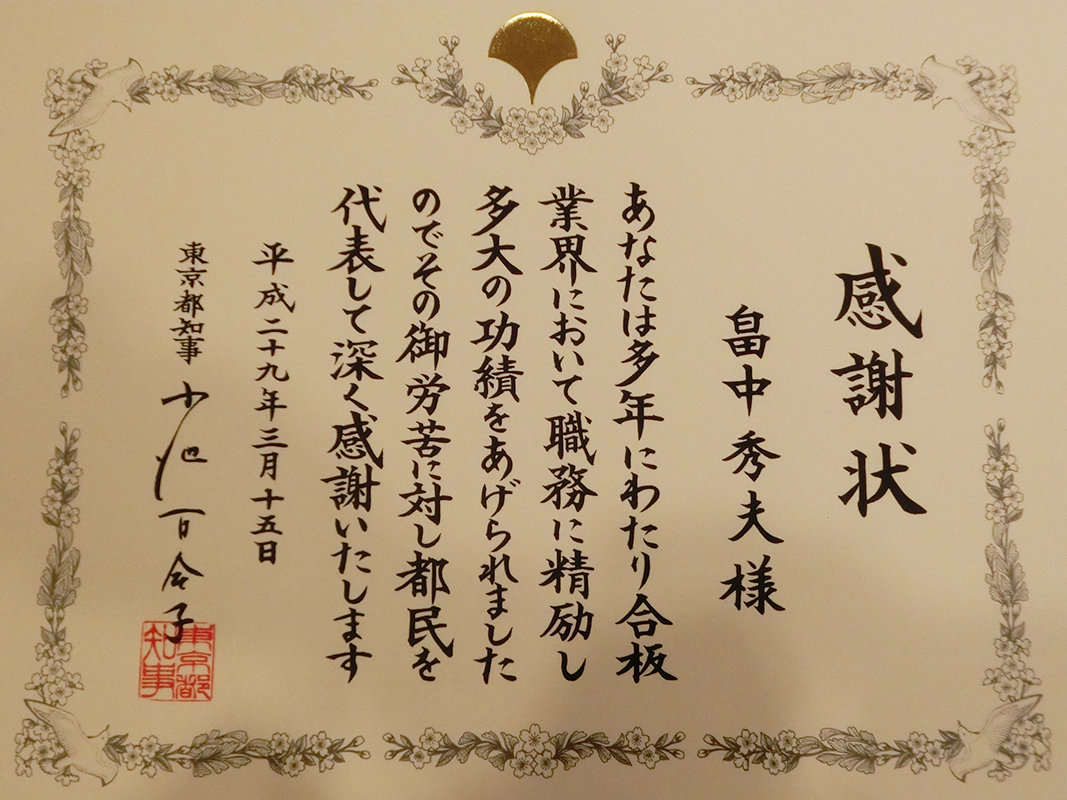 感謝状
畠中秀夫様
あなたは多年にわたり合板
業界において職務に精励し
多大の功績をあげられました
のでその御労苦に対し都民を
代表して深く感謝いたします
平成二十九年三月十五日
東京都知事 小池百合子
東京都知事